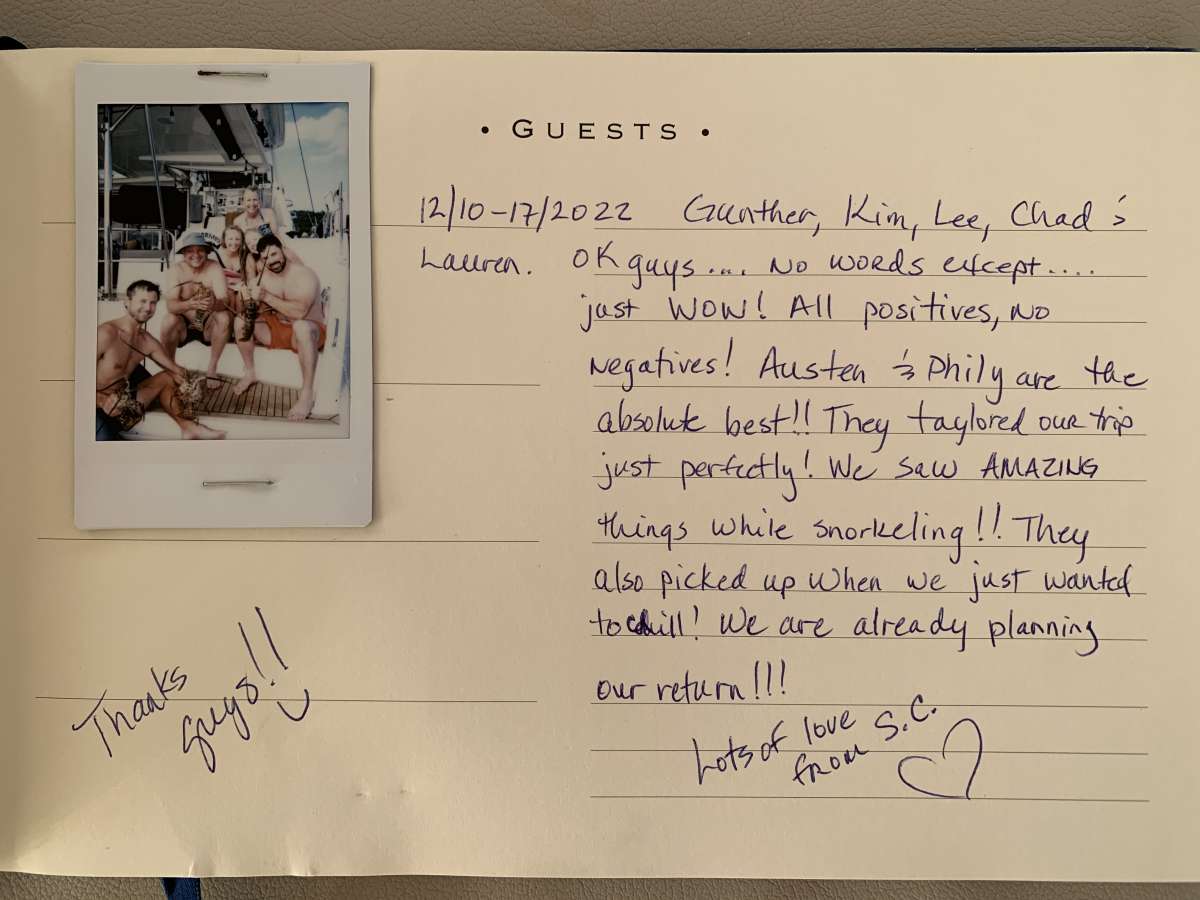 • GUESTS •
12/10-17/2022 Gunther, Kim, Lee, Chad &
Lauren. OK guys.... No words except....
just WOW! All positives, no
negatives! Austen & Phily are the
absolute best!! They taylored our trip
just perfectly! We saw AMAZING
things while snorkeling!! They
also picked up when we just wanted
to chill! We are already planning
our return!!!
Lots of love
from S.C.
Thanks
guys!!